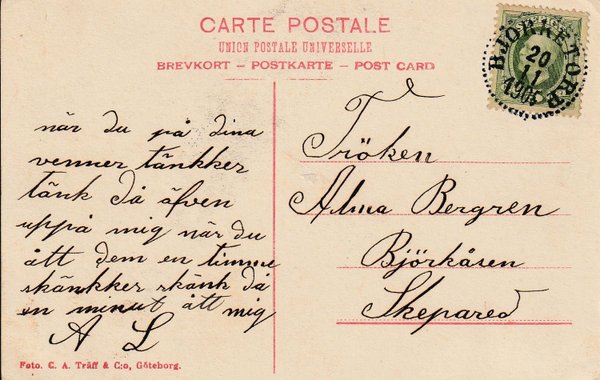 CARTE POSTALE
UNION POSTALE UNIVERSELLE
BREVKORT – POSTKARTE – POST CARD
BJÖRKETORP
20
11
1905
när du på dina
venner tänkker
tänk då äfven
uppå mig när du
ått dem en timme
skänkker skänk då
en minut ått mig
A L
Fröken
Alma Bergren
Björkåsen
Skepared
Foto. C. A. Träff & C:o, Göteborg.